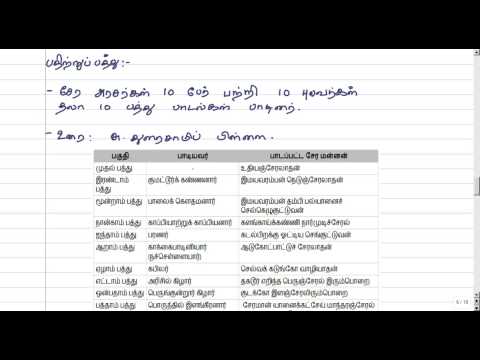 பதிற்றுப்பத்து:-
- சேர அரசர்கள் 10 பேர் பற்றி 10 புலவர்கள்
தலா 10 பத்து பாடல்கள் பாடினர்.
- உரை: சு. துரைசாமிப் பிள்ளை.
பகுதி பாடியவர் பாடப்பட்ட சேர மன்னன்
முதல் பத்து - உதியஞ்சேரலாதன்
இரண்டாம் பத்து குமட்டூர்க் கண்ணனார் இமயவரம்பன் நெடுஞ்சேரலாதன்
மூன்றாம் பத்து பாலைக் கௌதமனார் இமயவரம்பன் தம்பி பல்யானைச் செல்கெழுகுட்டுவன்
நான்காம் பத்து காப்பியாற்றுக் காப்பியனார் களங்காய்க்கண்ணி நார்முடிச்சேரல்
ஐந்தாம் பத்து பரணர் கடல்பிறகு ஓட்டிய செங்குட்டுவன்
ஆறாம் பத்து காக்கைபாடினியார் நச்செள்ளையார் ஆடுகோட்பாட்டுச் சேரலாதன்
ஏழாம் பத்து கபிலர் செல்வக் கடுங்கோ வாழியாதன்
எட்டாம் பத்து அரிசில் கிழார் தகடூர் எறிந்த பெருஞ்சேரல் இரும்பொறை
ஒன்பதாம் பத்து பெருங்குன்றூர் கிழார் குடக்கோ இளஞ்சேரலிரும்பொறை
பத்தாம் பத்து பொருந்தில் இளங்கீரனார் சேரமான் யானைக்கட்சேய் மாந்தரஞ்சேரல்